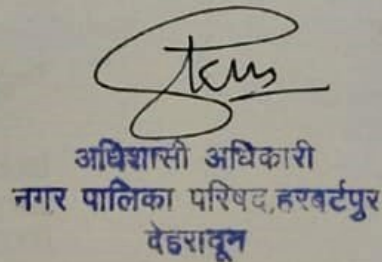 अधिशासी अधिकारी
नगर पालिका परिषद,हरबर्टपुर
देहरादून